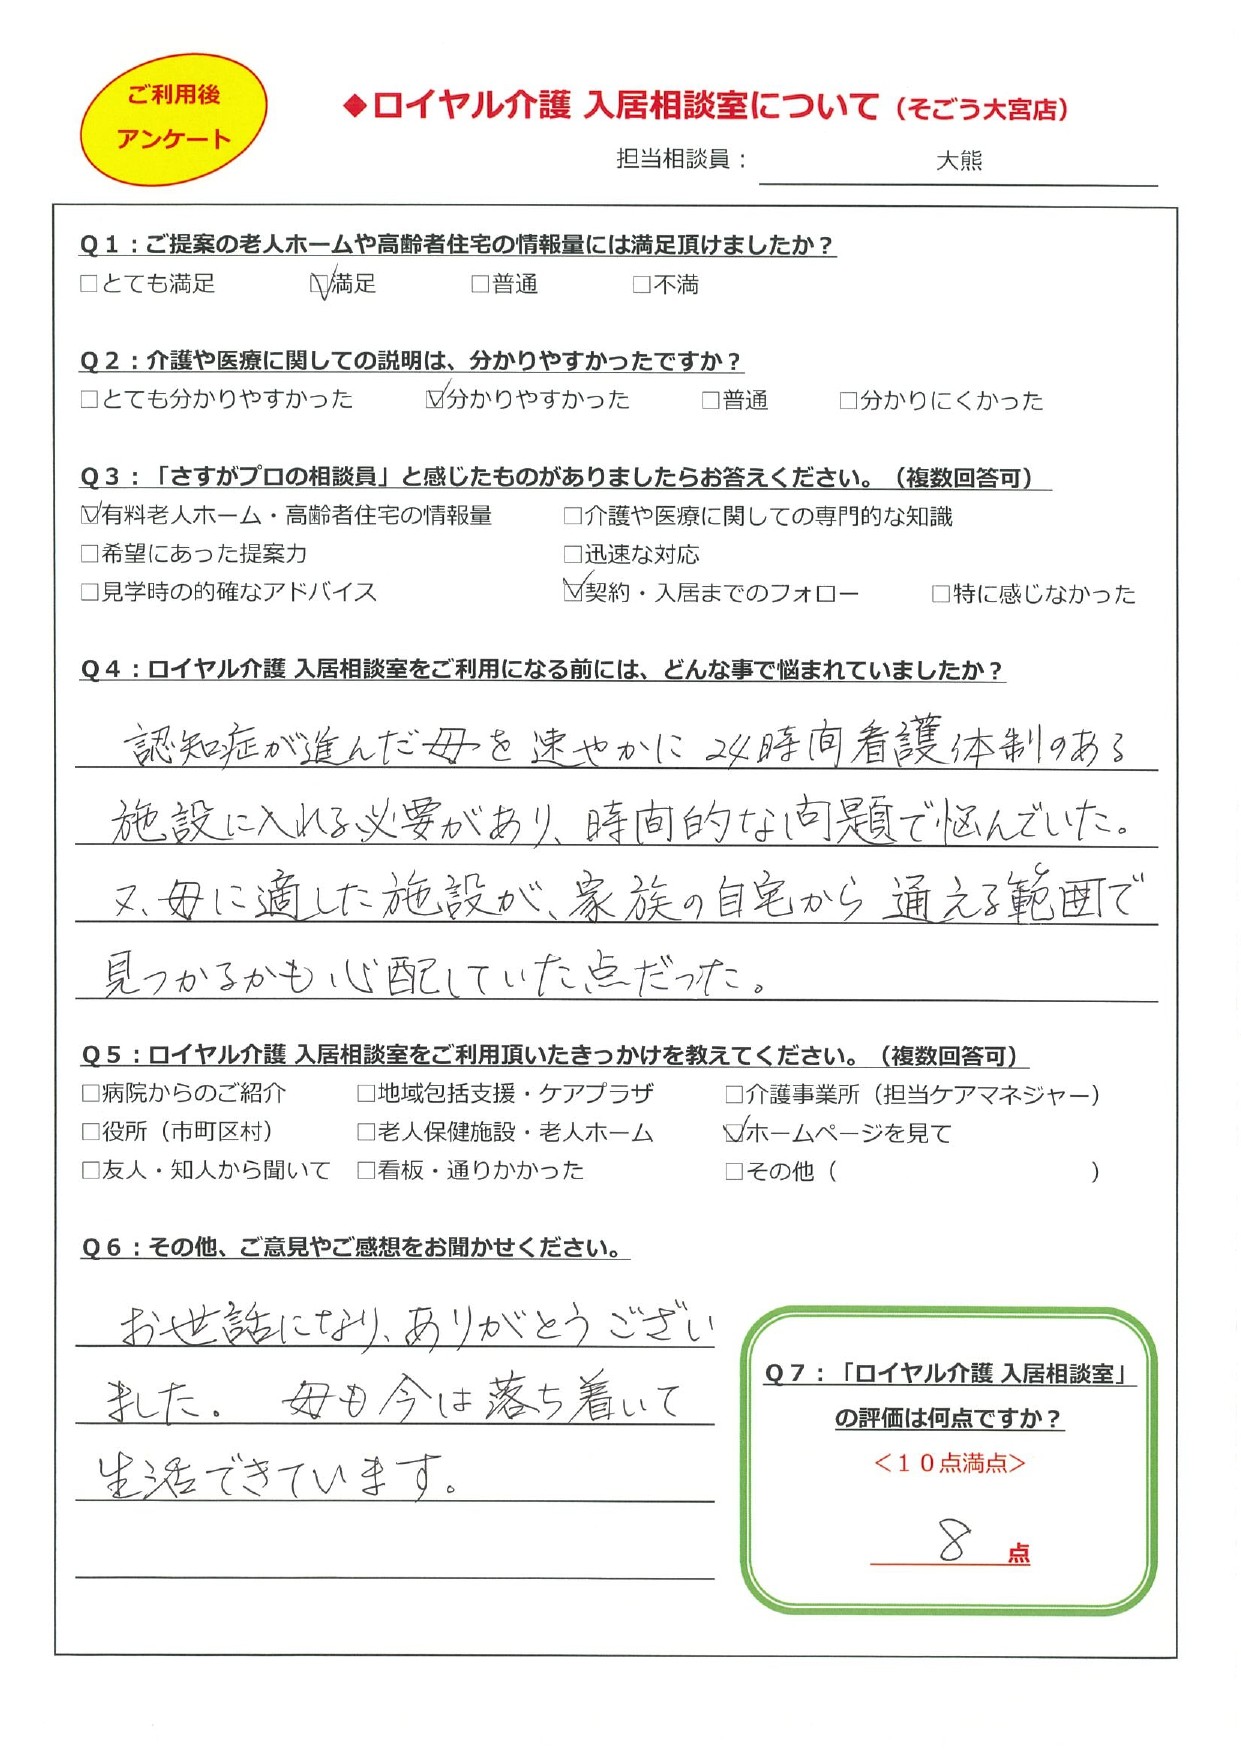 ご利用後
アンケート
◆ロイヤル介護 入居相談室について（そごう大宮店）
担当相談員： 大熊
Ｑ１：ご提案の老人ホームや高齢者住宅の情報量には満足頂けましたか？
□とても満足 ☑満足 □普通 □不満
Ｑ２：介護や医療に関しての説明は、分かりやすかったですか？
□とても分かりやすかった ☑分かりやすかった □普通 □分かりにくかった
Ｑ３：「さすがプロの相談員」と感じたものがありましたらお答えください。（複数回答可）
☑有料老人ホーム・高齢者住宅の情報量 □介護や医療に関しての専門的な知識
□希望にあった提案力 □迅速な対応
□見学時の的確なアドバイス ☑契約・入居までのフォロー □特に感じなかった
Ｑ４：ロイヤル介護 入居相談室をご利用になる前には、どんな事で悩まれていましたか？
認知症が進んだ母を速やかに24時間看護体制のある
施設に入れる必要があり、時間的な問題で悩んでいた。
又、母に適した施設が、家族の自宅から通える範囲で
見つかるかも心配していた点だった。
Ｑ５：ロイヤル介護 入居相談室をご利用頂いたきっかけを教えてください。（複数回答可）
□病院からのご紹介 □地域包括支援・ケアプラザ □介護事業所（担当ケアマネジャー）
□役所（市町区村） □老人保健施設・老人ホーム ☑ホームページを見て
□友人・知人から聞いて □看板・通りかかった □その他（ ）
Ｑ６：その他、ご意見やご感想をお聞かせください。
お世話になり、ありがとうござい
ました。 母も今は落ち着いて
生活できています。
Ｑ７：「ロイヤル介護 入居相談室」
の評価は何点ですか？
＜１０点満点＞
8 点